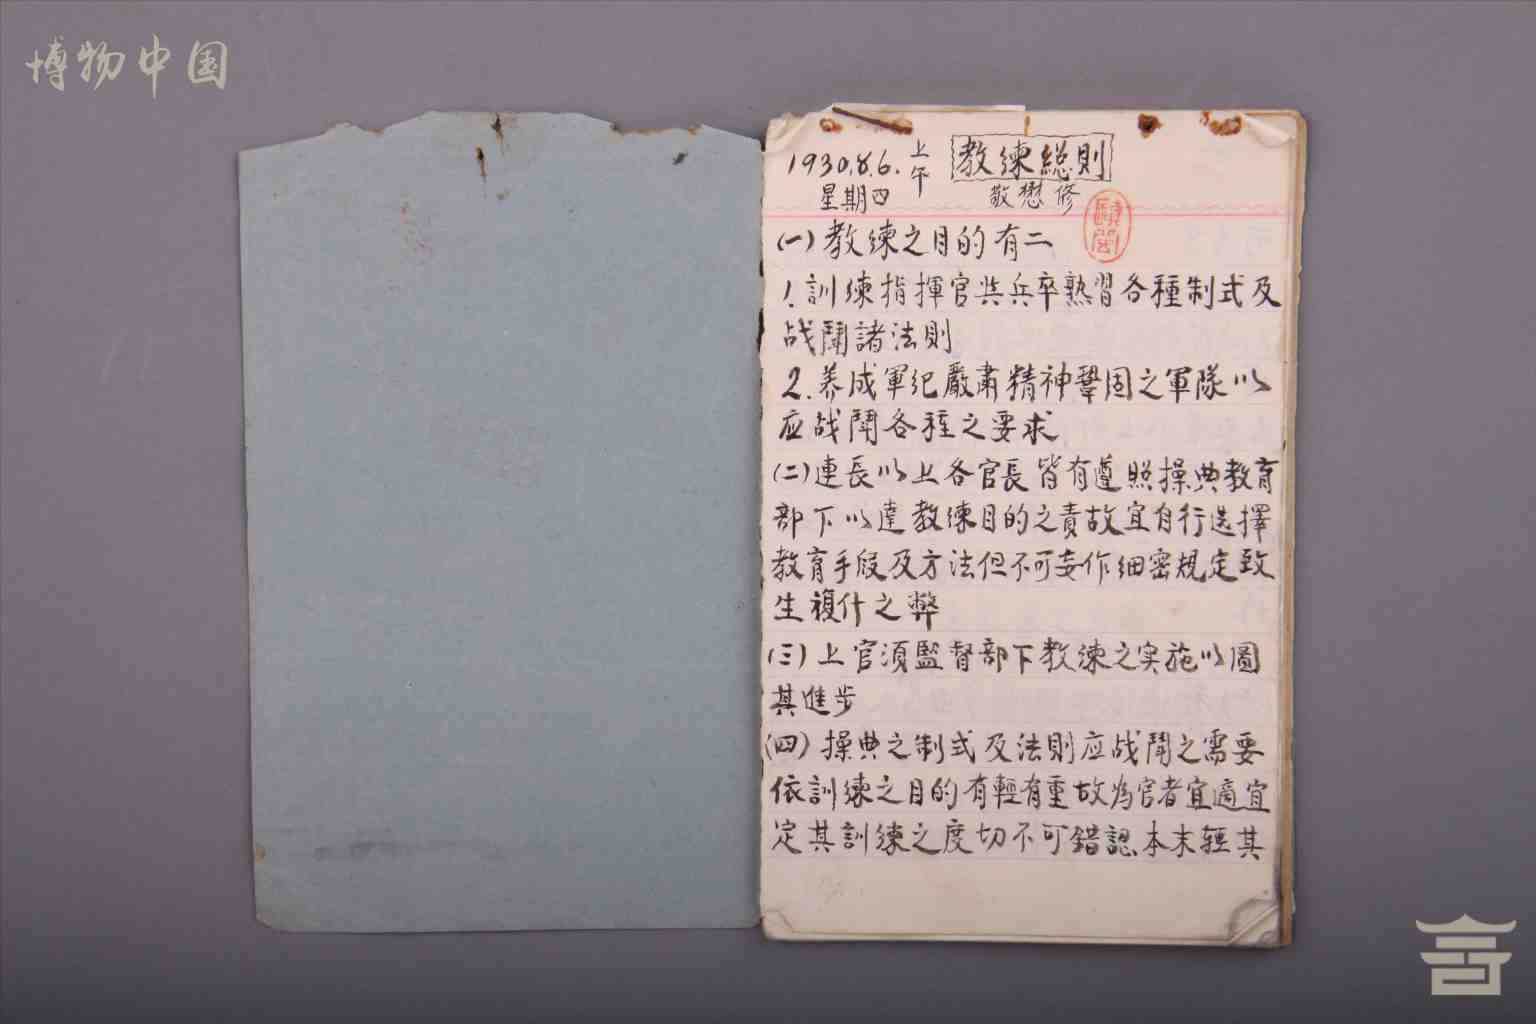 博物中国
1930.8.6. 上午 教練総則
星期四 敬懋修
(一)教練之目的有二
1.訓練指揮官与兵卒熟習各種制式及
战鬪諸法則
2.养成軍纪嚴肅精神鞏固之軍隊以
应战鬪各種之要求
(二)連長以上各官長皆有遵照操典教育
部下以達教練目的之責故宜自行选擇
教育手段及方法但不可妄作细密規定致
生複什之弊
(三)上官須監督部下教練之实施以圖
其進步
(四)操典之制式及法則应战鬪之需要
依訓練之目的有輕有重故为官者宜適宜
定其訓練之度切不可錯認本末輕其